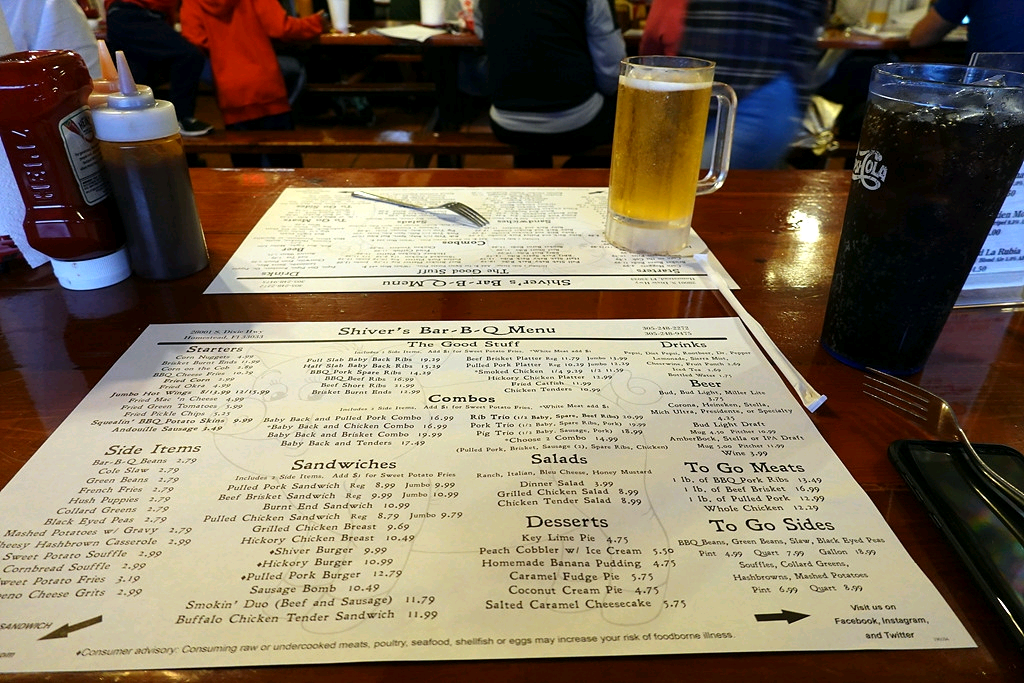 Shiver's Bar-B-Q Menu
Homestead, FL 33033
305-248-2272
305-248-9475
Starters
Corn Nuggets 4.99
Brisket Burnt Ends
Corn on the Cob
BBQ Cheese Fries
Fried Corn 2.99
Fried Okra 4.99
Jumbo Hot Wings 8/13.99 12/15.99
Fried Mac 'n Cheese 4.99
Fried Green Tomatoes 3.99
Fried Pickle Chips
Squealin' BBQ Potato Skins 9.99
Andouille Sausage 3.49
Side Items
Bar-B-Q Beans 2.79
Cole Slaw 2.79
Green Beans 2.79
French Fries 2.79
Hush Puppies 2.79
Collard Greens 2.79
Black Eyed Peas 2.79
Mashed Potatoes w/ Gravy 2.79
Hashbrown Casserole 2.99
Sweet Potato Souffle 2.99
Cornbread Souffle 2.99
Sweet Potato Fries 3.19
Cheese Grits 2.99
SANDWICH
The Good Stuff
Includes 1 Side Items, Add $1 for Sweet Potato Fries, *White Meat add $1
Full Slab Baby Back Ribs 19.79
Half Slab Baby Back Ribs 15.29
BBQ Pork Spare Ribs
BBQ Beef Ribs 16.99
Beef Short Ribs 21.99
Brisket Burnt Ends 12.99
Beef Brisket Platter Reg 11.79 Jumbo 13.99
Pulled Pork Platter Reg 10.39
*Smoked Chicken 1/4 9.59 1/2 11.59
Hickory Chicken Platter 13.99
Fried Catfish 11.99
Chicken Tenders 10.99
Combos
Includes 2 Side Items, Add $1 for Sweet Potato Fries, *White Meat add $1
Baby Back and Pulled Pork Combo 16.99
*Baby Back and Chicken Combo 16.99
Baby Back and Brisket Combo 19.99
Baby Back and Tenders 17.49
Rib Trio (1/2 Baby, Spare, Beef Ribs) 20.99
Pork Trio (1/2 Baby, Spare, Pork) 19.99
Pig Trio (1/2 Baby, Sausage, Pork) 18.99
*Choose 2 Combo 14.99
(Pulled Pork, Brisket, Sausage (2), Spare Ribs, Chicken)
Sandwiches
Includes 2 Side Items, Add $1 for Sweet Potato Fries
Pulled Pork Sandwich Reg 8.99 Jumbo 9.99
Beef Brisket Sandwich Reg 9.99 Jumbo 10.99
Burnt End Sandwich 10.99
Pulled Chicken Sandwich Reg 8.79 Jumbo 9.79
Grilled Chicken Breast 9.69
Hickory Chicken Breast 10.49
♦Shiver Burger 9.99
♦Hickory Burger 10.99
♦Pulled Pork Burger 12.79
Sausage Bomb 10.49
Smokin' Duo (Beef and Sausage) 11.79
Buffalo Chicken Tender Sandwich 11.99
Salads
Ranch, Italian, Bleu Cheese, Honey Mustard
Dinner Salad 3.99
Grilled Chicken Salad 8.99
Chicken Tender Salad 8.99
Desserts
Key Lime Pie 4.75
Peach Cobbler w/ Ice Cream 5.50
Homemade Banana Pudding 4.75
Caramel Fudge Pie 5.75
Coconut Cream Pie 4.75
Salted Caramel Cheesecake 5.75
Drinks
Pepsi, Diet Pepsi, Rootbeer, Dr. Pepper
Lemonade, Sierra Mist,
Cherrywine, Fruit Punch 2.69
Iced Tea 1.69
Bottled Water 1.75
Beer
Bud, Bud Light, Miller Lite
3.75
Corona, Heineken, Stella,
Mich Ultra, Presidente, or Specialty
4.35
Bud Light Draft
Mug 4.50 Pitcher 10.99
AmberBock, Stella or IPA Draft
Mug 5.00 Pitcher 11.99
Wine 3.99
To Go Meats
1 lb. of BBQ Pork Ribs 13.49
1 lb. of Beef Brisket 16.99
1 lb. of Pulled Pork 12.99
Whole Chicken 12.29
To Go Sides
BBQ Beans, Green Beans, Slaw, Black Eyed Peas
Pint 4.99 Quart 7.99 Gallon 18.99
Souffles, Collard Greens,
Hashbrowns, Mashed Potatoes
Pint 6.99 Quart 8.99
Visit us on
Facebook, Instagram,
and Twitter
♦Consumer advisory: Consuming raw or undercooked meats, poultry, seafood, shellfish or eggs may increase your risk of foodborne illness.
Shiver's Bar-B-Q Menu
The Good Stuff
Starters
Drinks
Combos
Beer
Salads
Sandwiches
To Go Meats
La Rubia